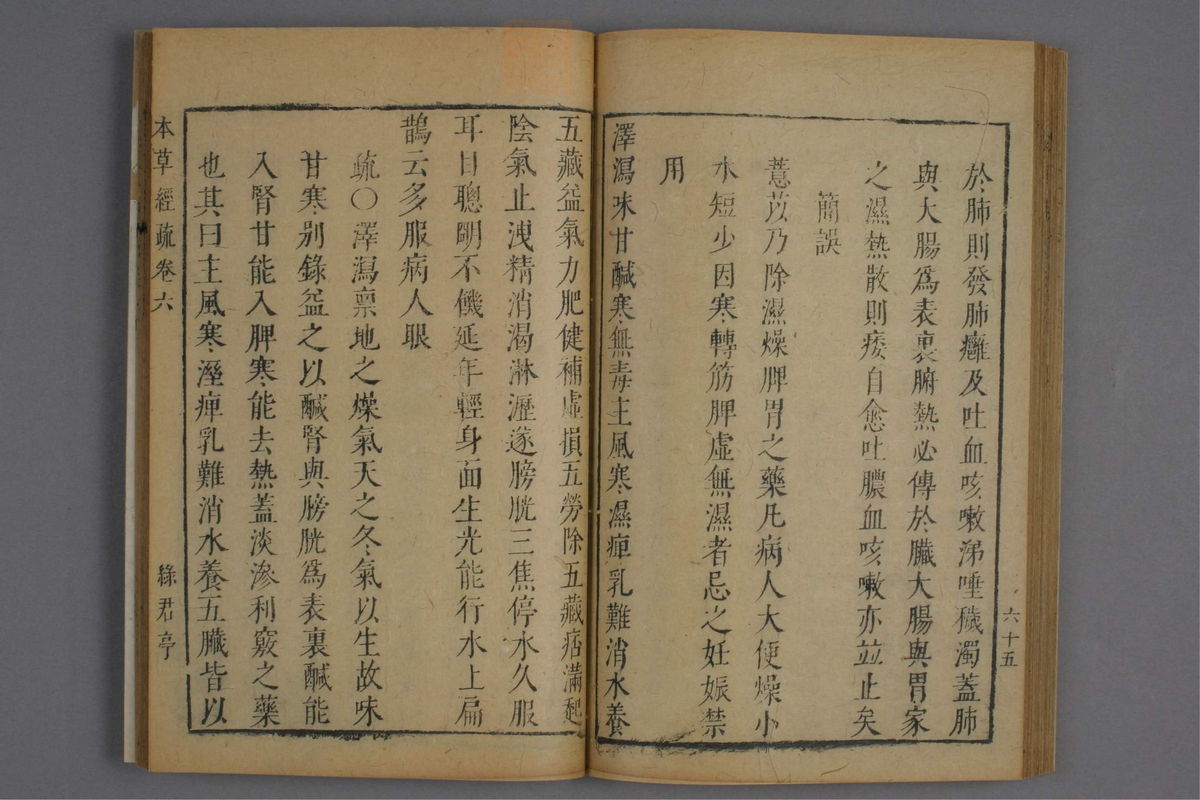 於肺則發肺癰及吐血咳嗽涕唾穢濁蓋肺
與大腸爲表裏腑熱必傳於臟大腸與胃家
之濕熱散則痿自愈吐膿血咳嗽亦並止矣
簡誤
薏苡乃除濕燥脾胃之藥凡病人大便燥小
水短少因寒轉筋脾虛無濕者忌之妊娠禁
用
澤瀉味甘鹹寒無毒主風寒濕痺乳難消水養
六十五
五藏益氣力肥健補虛損五勞除五藏痞滿起
陰氣止洩精消渴淋瀝逐膀胱三焦停水久服
耳目聰明不饑延年輕身面生光能行水上扁
鵲云多服病人眼
疏〇澤瀉禀地之燥氣天之冬氣以生故味
甘寒別錄益之以鹹腎與膀胱爲表裏鹹能
入腎甘能入脾寒能去熱蓋淡滲利竅之藥
也其曰主風寒溼痺乳難消水養五臟皆以
本草經疏卷六
綠君亭